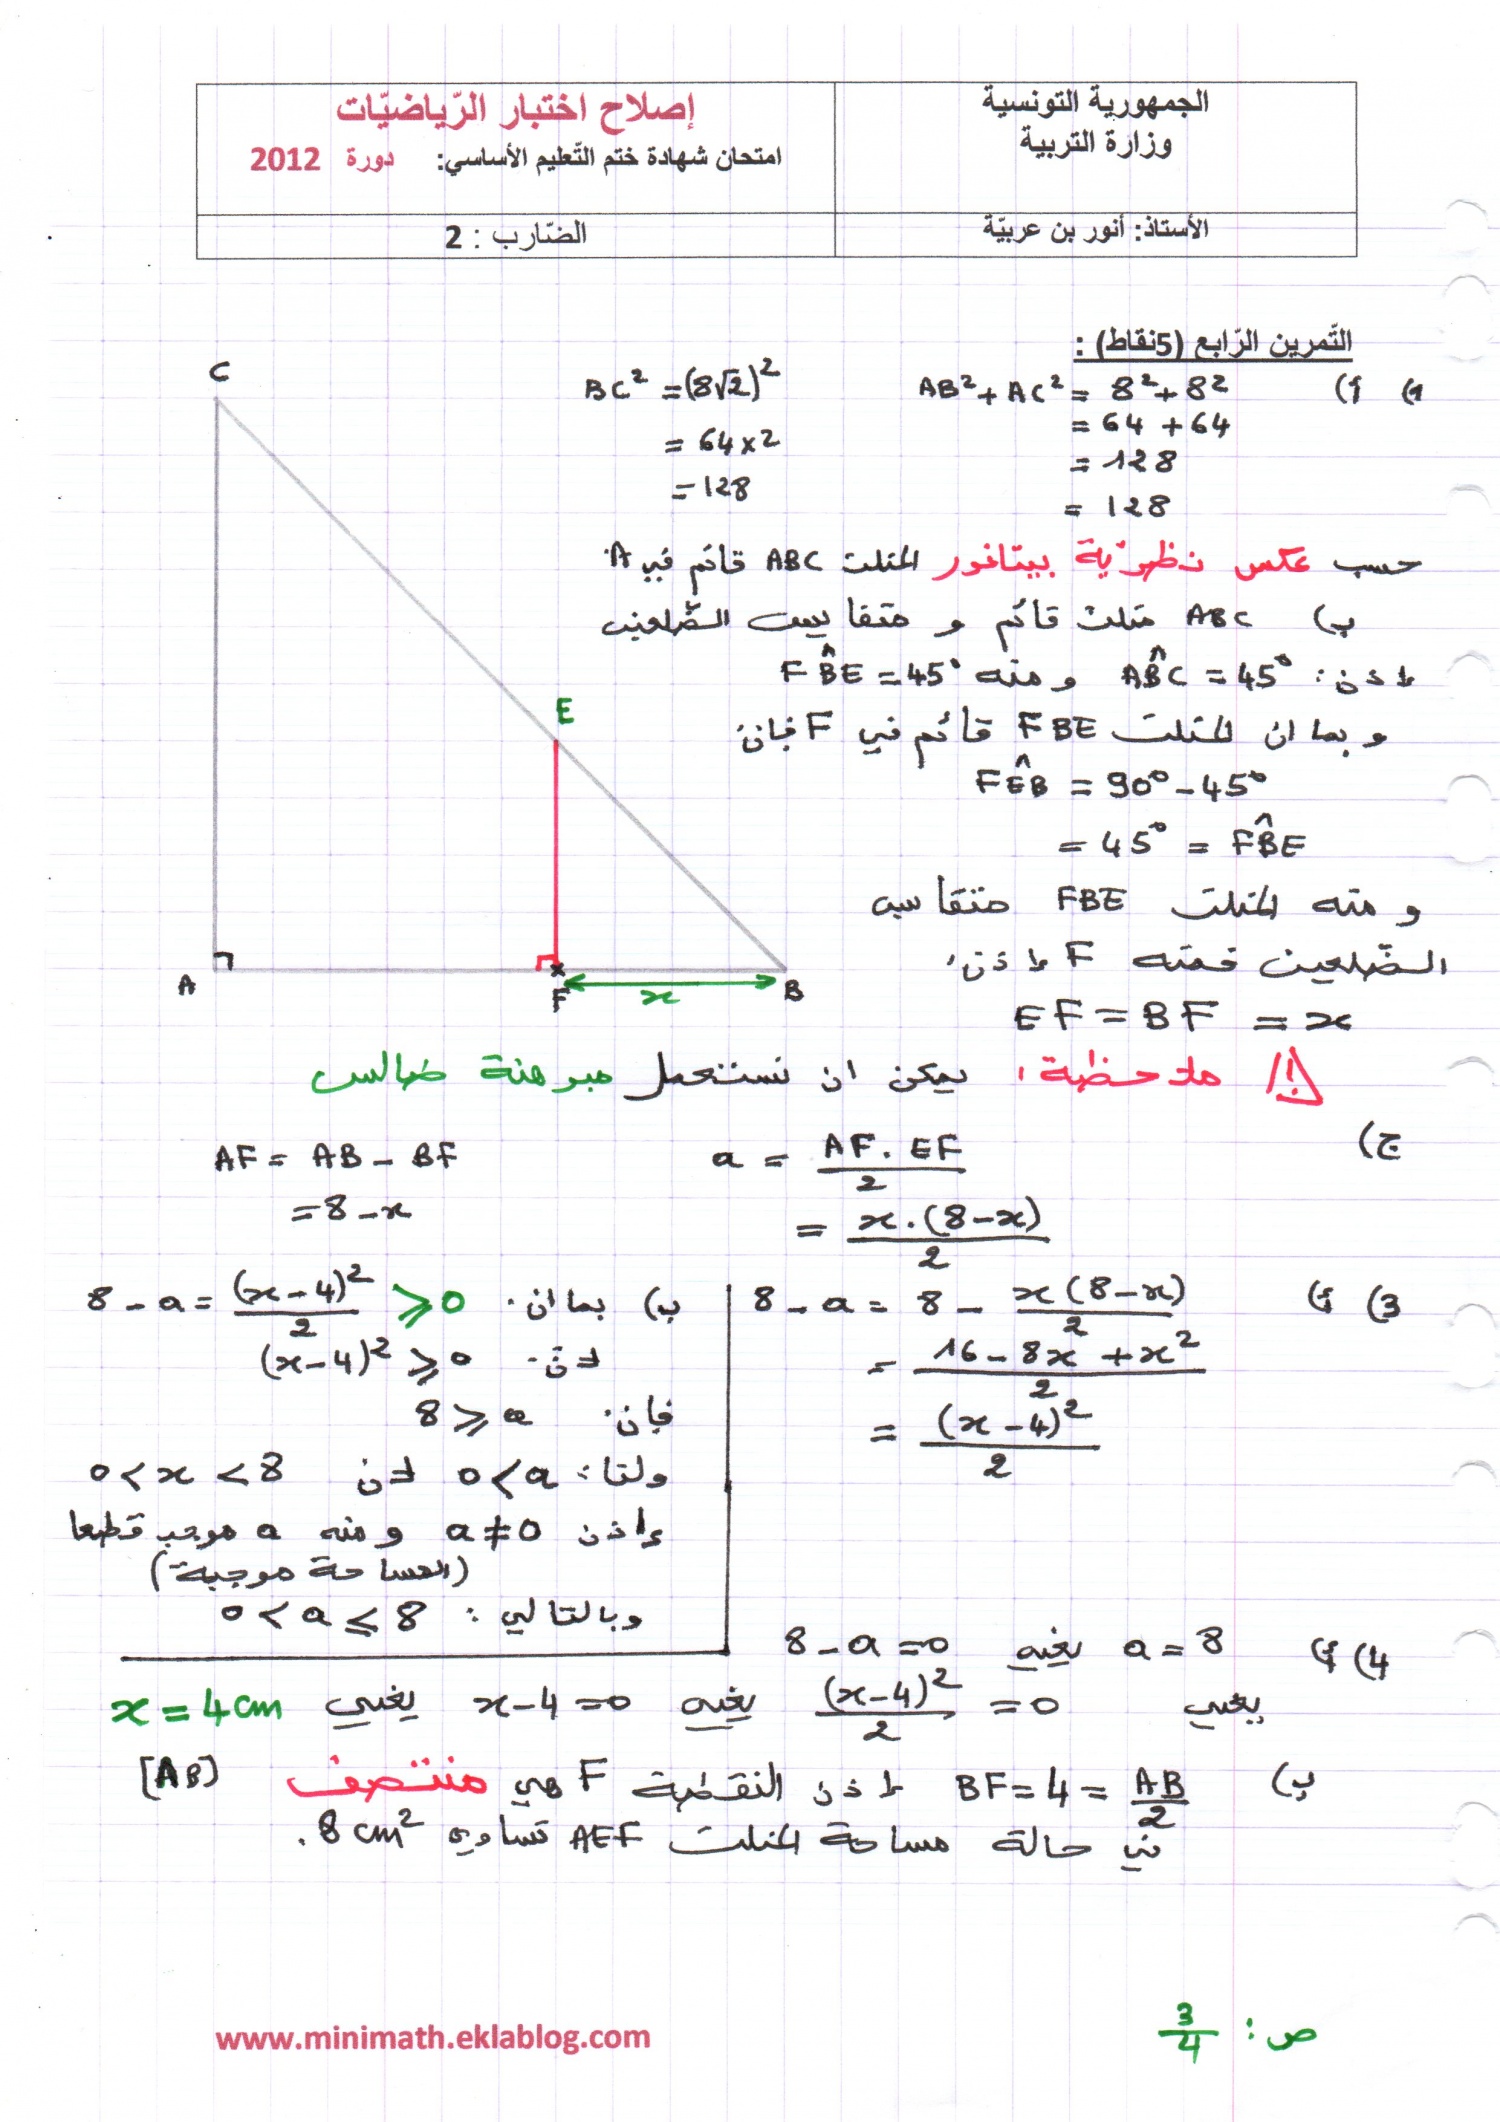 الجمهورية التونسية
وزارة التربية
إصلاح اختبار الرّياضيّات
امتحان شهادة ختم التّعليم الأساسي: دورة 2012
الأستاذ: أنور بن عربيّة
الضّارب : 2
التّمرين الرّابع (5نقاط) :
1) أ) AB² + AC² = 8² + 8²
= 64 + 64
= 128
= 128
BC² = (8√2)²
= 64 × 2
= 128
حسب عكس نظريّة بيتاغور المثلث ABC قائم في A.
ب) ABC مثلث قائم و متقايس الضّلعين
إذن: AB̂C = 45° و منه FB̂E = 45°
و بما ان المثلث FBE قائم في F فإن:
FÊB = 90° - 45°
= 45° = FB̂E
و منه المثلث FBE متقايس
الضّلعين قمته F إذن:
EF = BF = x
C
E
A
F
x
B
ملاحظة: يمكن ان نستعمل مبرهنة طالس
ج) a = AF . EF / 2
= x . (8 - x) / 2
AF = AB - BF
= 8 - x
3) أ) 8 - a = 8 - x (8 - x) / 2
= 16 - 8x + x² / 2
= (x - 4)² / 2
ب) بما ان: 8 - a = (x - 4)² / 2 ⩾ 0
لان: (x - 4)² ⩾ 0
فإن: 8 ⩾ a
ولنا: 0 < a لان 0 < x < 8
إذن a ≠ 0 و منه a موجب قطعا
(المساحة موجبة)
وبالتالي: 0 < a ⩽ 8
4) أ) a = 8 يعني 8 - a = 0
يعني (x - 4)² / 2 = 0 يعني x - 4 = 0 يعني x = 4 cm
ب) BF = 4 = AB / 2 إذن النقطة F هي منتصف [AB]
في حالة مساحة المثلث AEF تساوي 8 cm².
www.minimath.eklablog.com
ص: 3/4